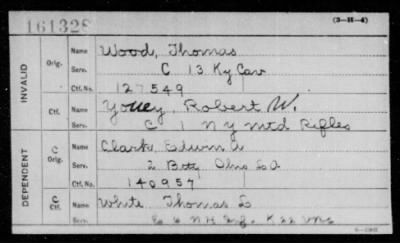 (3-H-4)
161328
INVALID
Orig.
Name Wood, Thomas
Serv. C 13 Ky Cav
Ctf. No. 127549
Ctf.
Name Robert W.
Serv. C 1 N Y Mtd Rifles
DEPENDENT
C Orig.
Name Clark, Edwin A
Serv. 2 Btty Ohio L A
Ctf. No. 140957
C Ctf.
Name White Thomas L
Serv. E 6 N H Inf. K 22 VRC